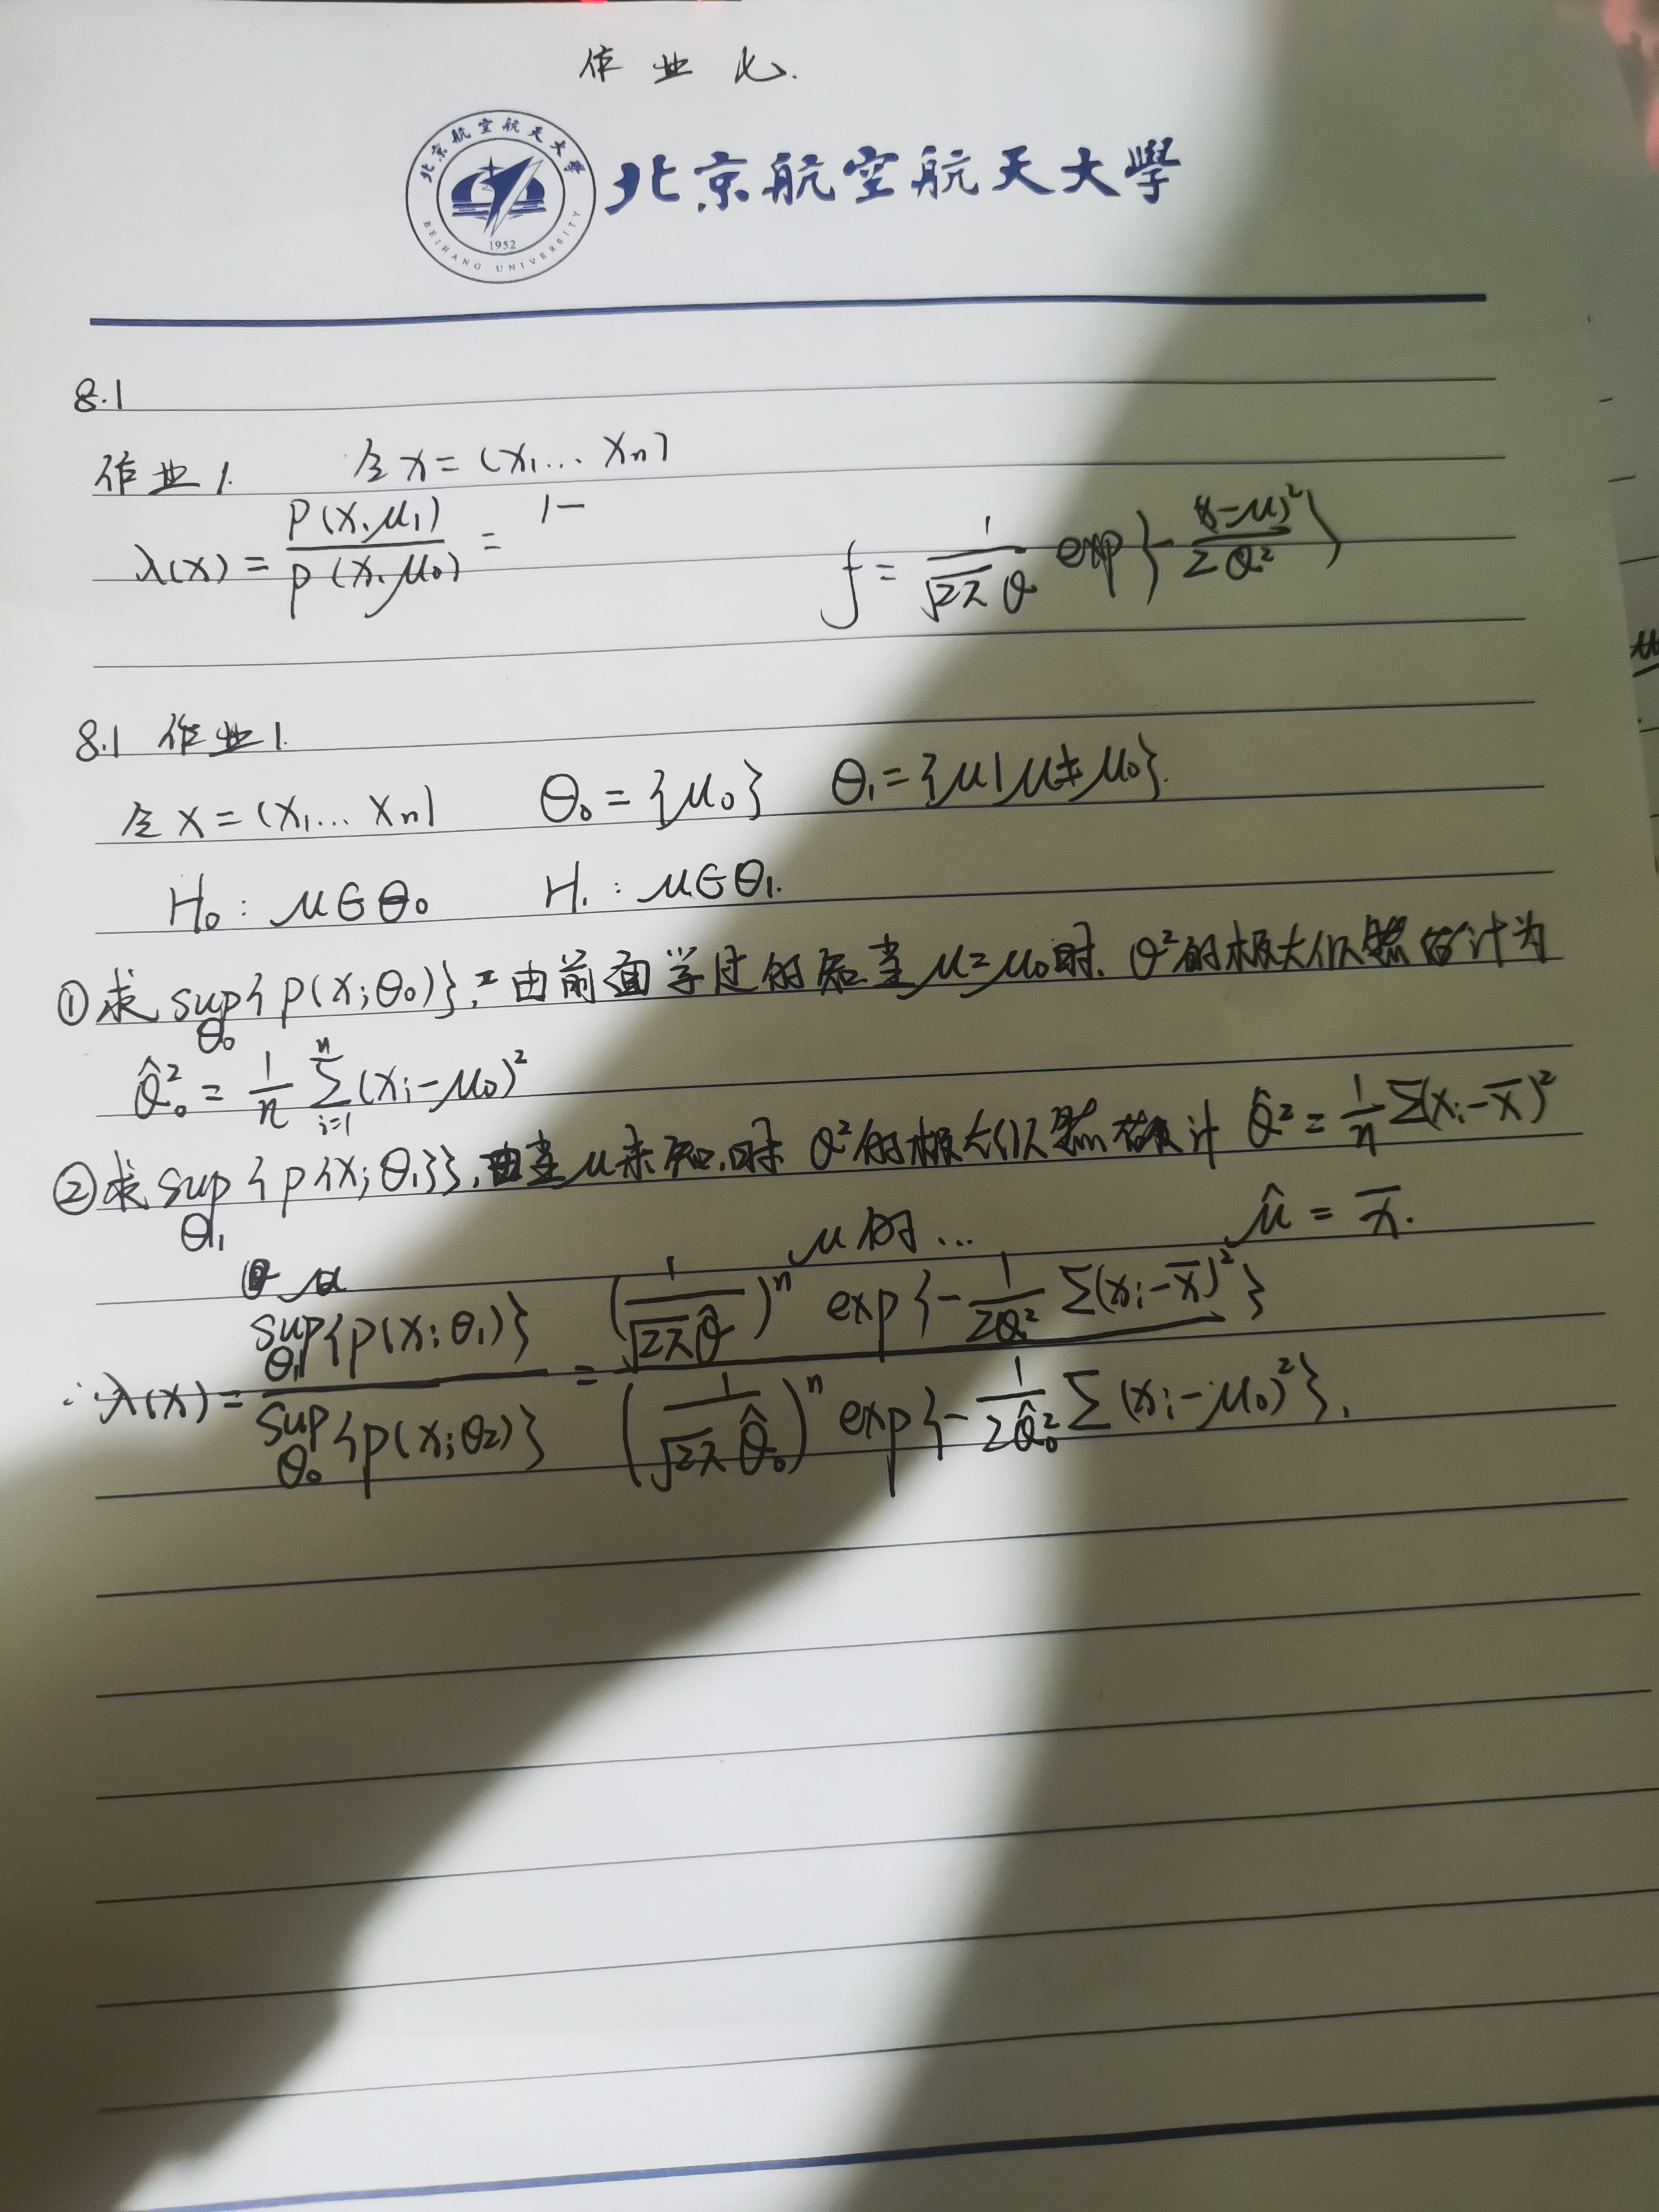 作业七.
北京航空航天大學
北京航空航天大學
BEIHANG UNIVERSITY
1952
8.1
作业1. 令x=(x₁... xₙ)
λ(x) = p(x.μ₁) / p(x.μ₀) = 1-
f = 1/(√2π σ) exp{-(x-μ)²/2σ²}
8.1 作业1.
令x=(x₁... xₙ) Θ₀={μ₀} Θ₁={μ|μ≠μ₀}.
H₀: μ∈Θ₀ H₁: μ∈Θ₁.
①求 sup_Θ₀{p(x;θ₀)}, 由前面学过的知.当μ=μ₀时. σ²的极大似然估计为
σ̂₀² = 1/n Σᵢ₌₁ⁿ(xᵢ-μ₀)²
②求 sup_Θ₁{p{x;θ₁}}, 由当μ未知.时 σ²的极大似然估计 σ̂² = 1/n Σ(xᵢ-x̄)²
μ的... μ̂ = x̄.
∴λ(x) = sup_Θ₁{p(x;θ₁)} / sup_Θ₀{p(x;θ₂)} = (1/(√2π σ̂))ⁿ exp{-1/2σ̂² Σ(xᵢ-x̄)²} / (1/(√2π σ̂₀))ⁿ exp{-1/2σ̂₀² Σ(xᵢ-μ₀)²}.